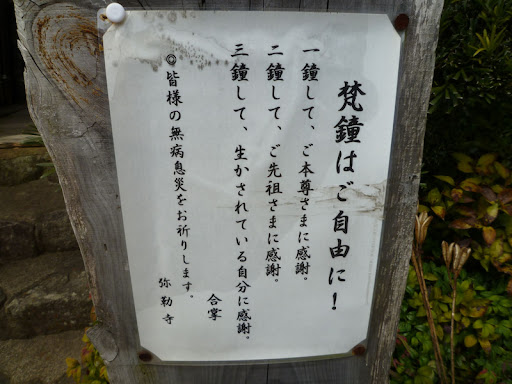 梵鐘はご自由に!
一鐘して、ご本尊さまに感謝。
二鐘して、ご先祖さまに感謝。
三鐘して、生かされている自分に感謝。
合掌
◎皆様の無病息災をお祈りします。
弥勒寺